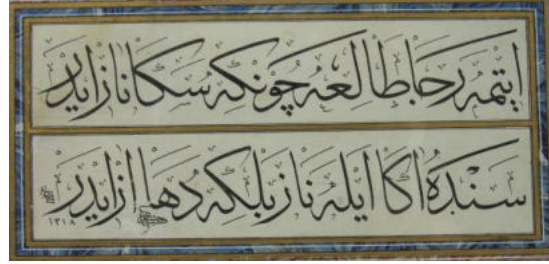 ایتمه رجا طالعه چونکه سکا ناز ایدر
سنده اکا ایله ناز بلکه دها از ایدر
١٣١٨